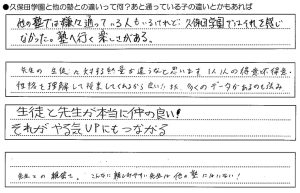 ●久保田学園と他の塾との違いって何？あと通っている子の違いとかもあれば
他の塾では嫌々通っている人もいるけれど、久保田学園ではそれを感じ
なかった。塾へ行く楽しさがある。
先生の生徒に対する熱量が違うなと思います 1人1人の得意や得意、
性格を理解して授業してくれるから良い 多くのデータがあるのも強み
生徒と先生が本当に仲の良い！
それがやる気UPにもつながる
先生との 親密さ。こんなに親しみやすい先生は他の塾にはいない！